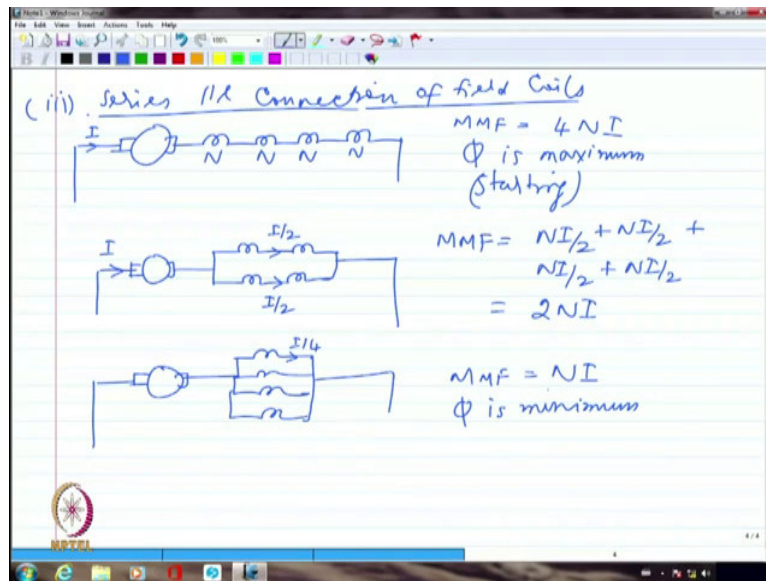 Note1 - Windows Journal
File Edit View Insert Actions Tools Help
100%
B I
(iii). Series 11l Connection of field Coils
I
N N N N
MMF = 4NI
Φ is maximum
(Starting)
I
I/2
I/2
MMF = NI/2 + NI/2 +
NI/2 + NI/2
= 2NI
I/4
MMF = NI
Φ is minimum
NPTEL
4/4